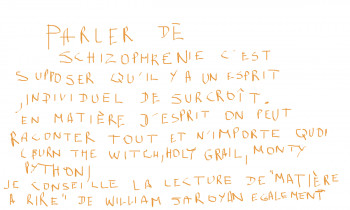 PARLER DE
SCHIZOPHRENIE C'EST
SUPPOSER QU'IL Y A UN ESPRIT
,INDIVIDUEL DE SURCROÎT.
EN MATIÈRE D'ESPRIT ON PEUT
RACONTER TOUT ET N'IMPORTE QUOI
(BURN THE WITCH, HOLY GRAIL, MONTY
PYTHON)
JE CONSEILLE LA LECTURE DE "MATIÈRE
A RIRE" DE WILLIAM SAROYAN EGALEMENT